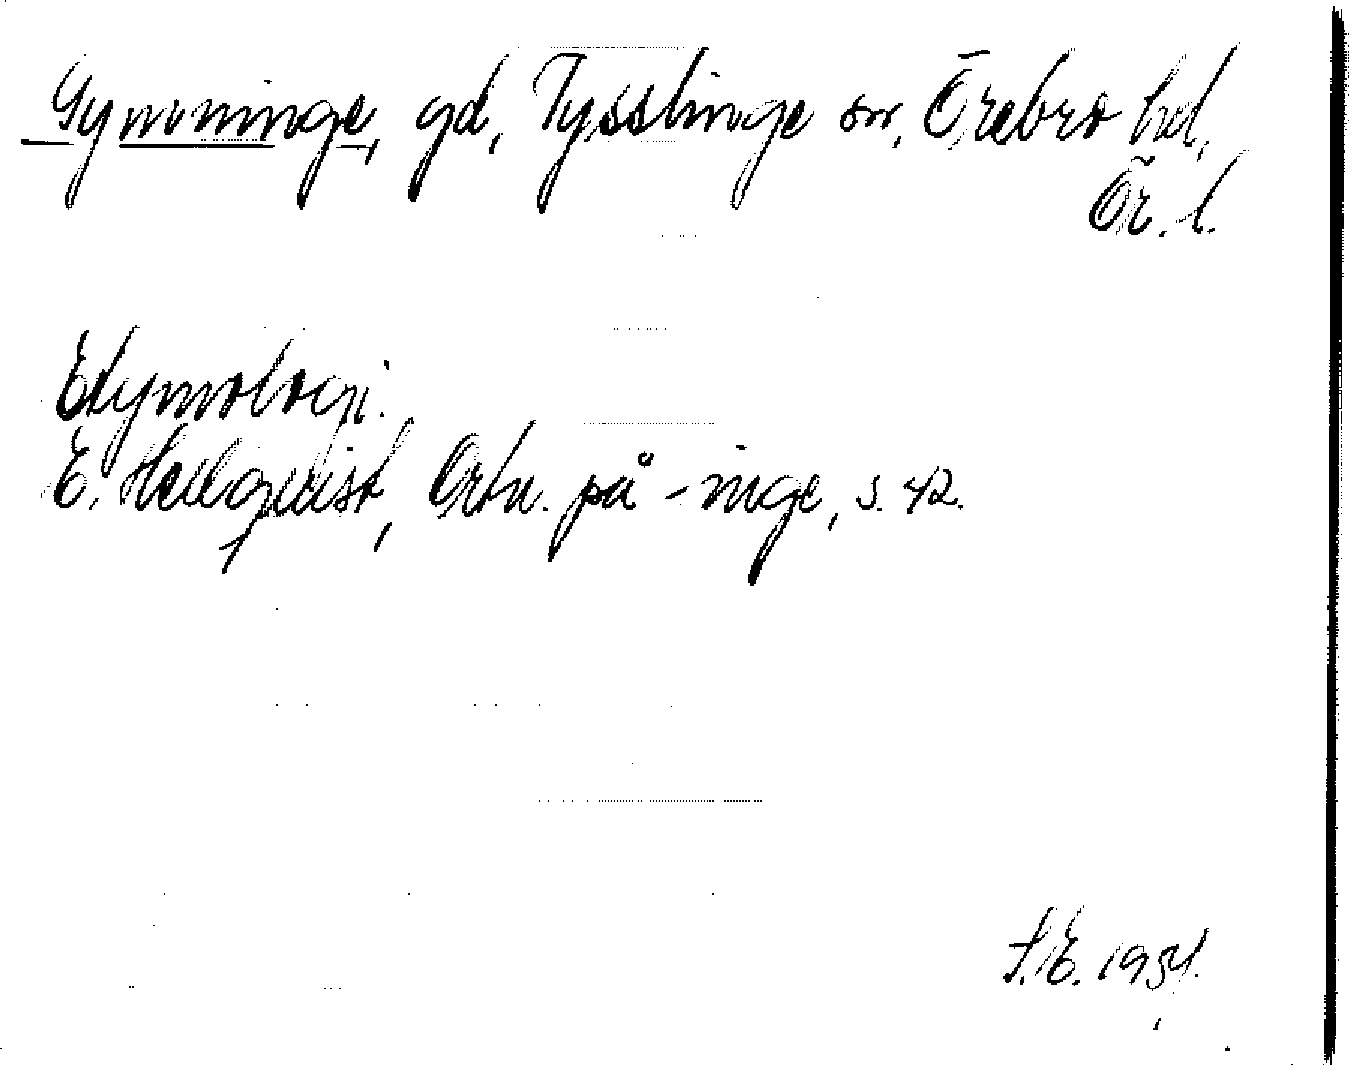 Gymninge, gd, Tysslinge sn, Örebro hd,
Ör. l.
Etymologi.
E. Hellquist, Ortn. på -inge, s. 42.
S.E. 1954.